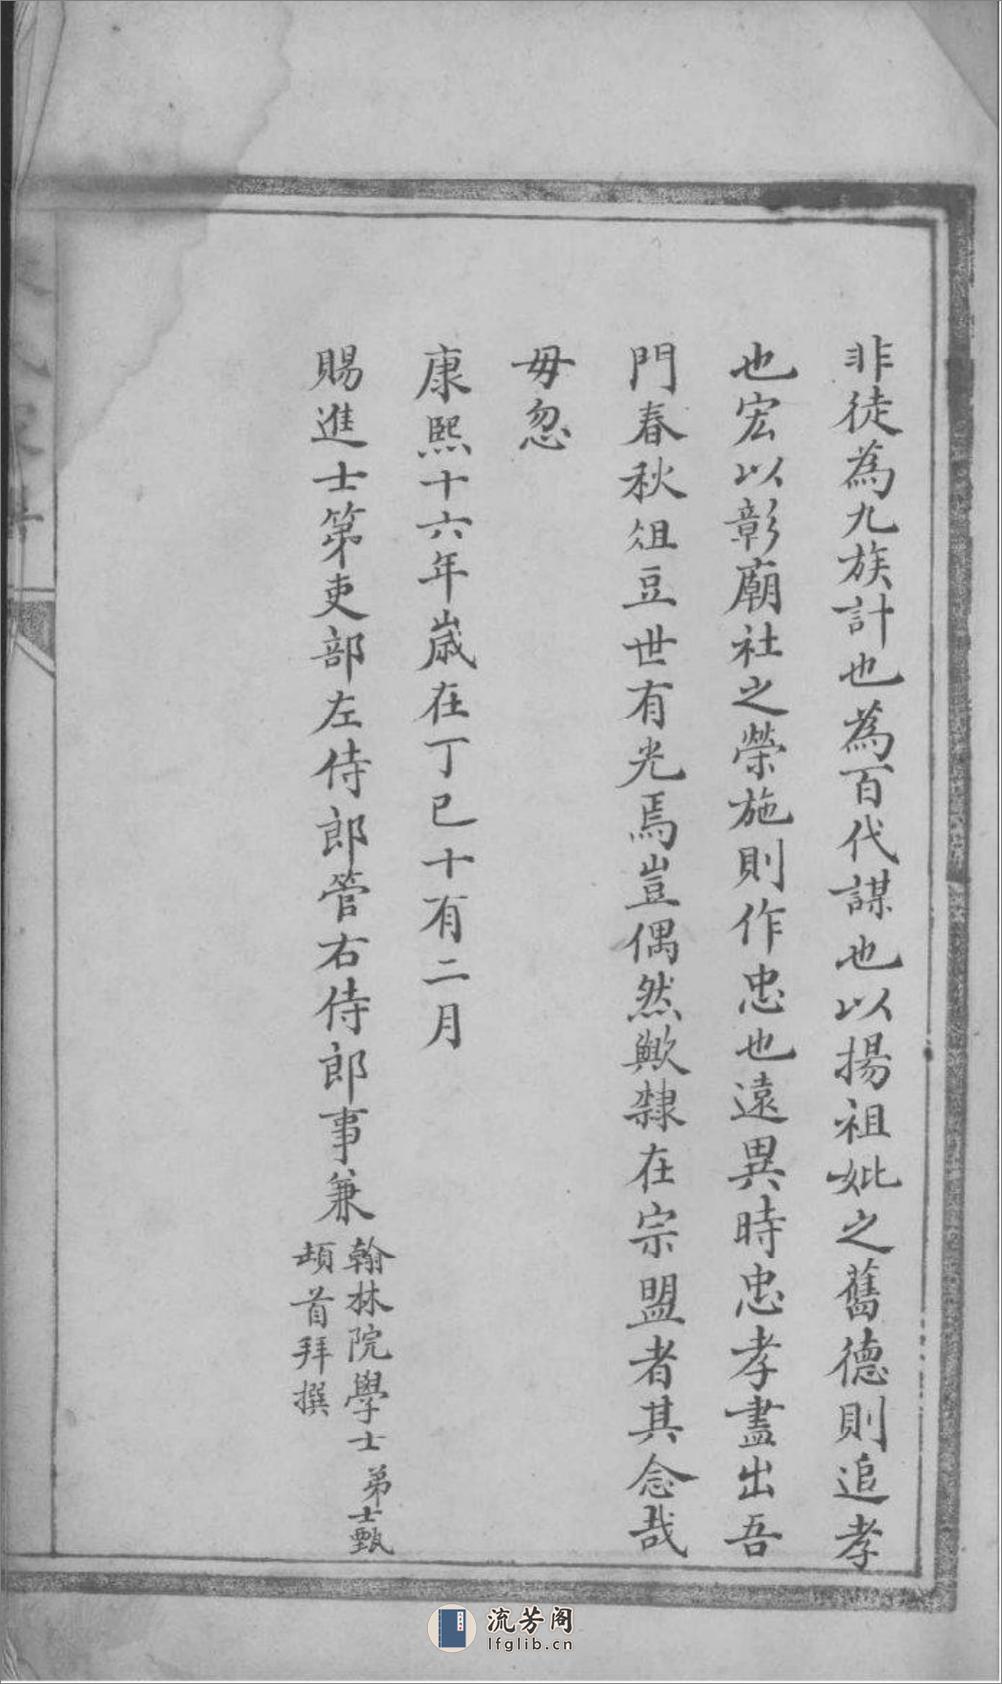 非徒為九族計也為百代謀也以揚祖妣之舊德則追孝
也宏以彰廟社之榮施則作忠也遠異時忠孝盡出吾
門春秋俎豆世有光焉豈偶然歟隸在宗盟者其念哉
毋忽
康熙十六年歲在丁巳十有二月
賜進士第吏部左侍郎管右侍郎事兼
翰林院學士弟士甄
頓首拜撰
流芳阁
lfglib.cn